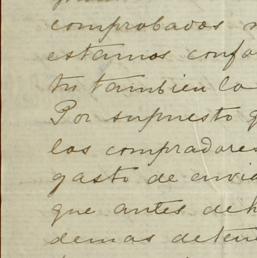 comprobados
estamos confo
tu tambien la
Por supuesto q
los compradores
gasto de envio
que antes de h
demas deten